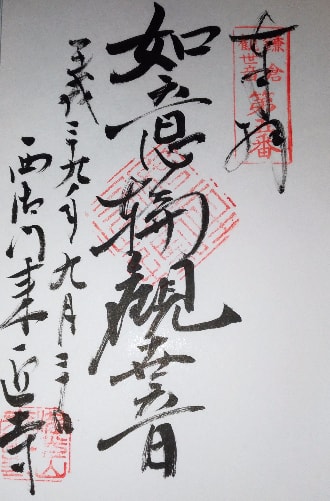 奉拝
鎌倉
観世音
第五番
如意輪観世音
平成二十九年九月
西御門来迎寺